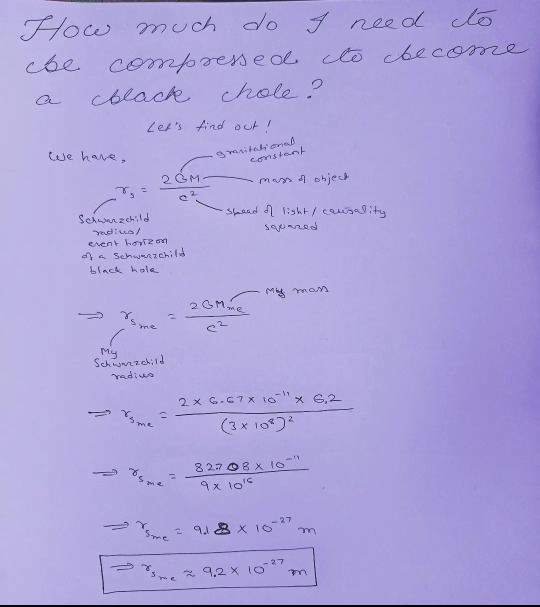 How much do I need to
be compressed to become
a black hole?
Let's find out!
We have,
gravitational
constant
r_s = 2GM / c²
mass of object
speed of light / causality
squared
Schwarzchild
radius/
event horizon
of a Schwarzchild
black hole
⇒ r_s_me = 2GM_me / c²
My mass
My
Schwarzchild
radius
⇒ r_s_me = 2 × 6.67 × 10⁻¹¹ × 62 / (3 × 10⁸)²
⇒ r_s_me = 827.08 × 10⁻¹¹ / 9 × 10¹⁶
⇒ r_s_me = 9.18 × 10⁻²⁷ m
⇒ r_s_me ≈ 9.2 × 10⁻²⁷ m